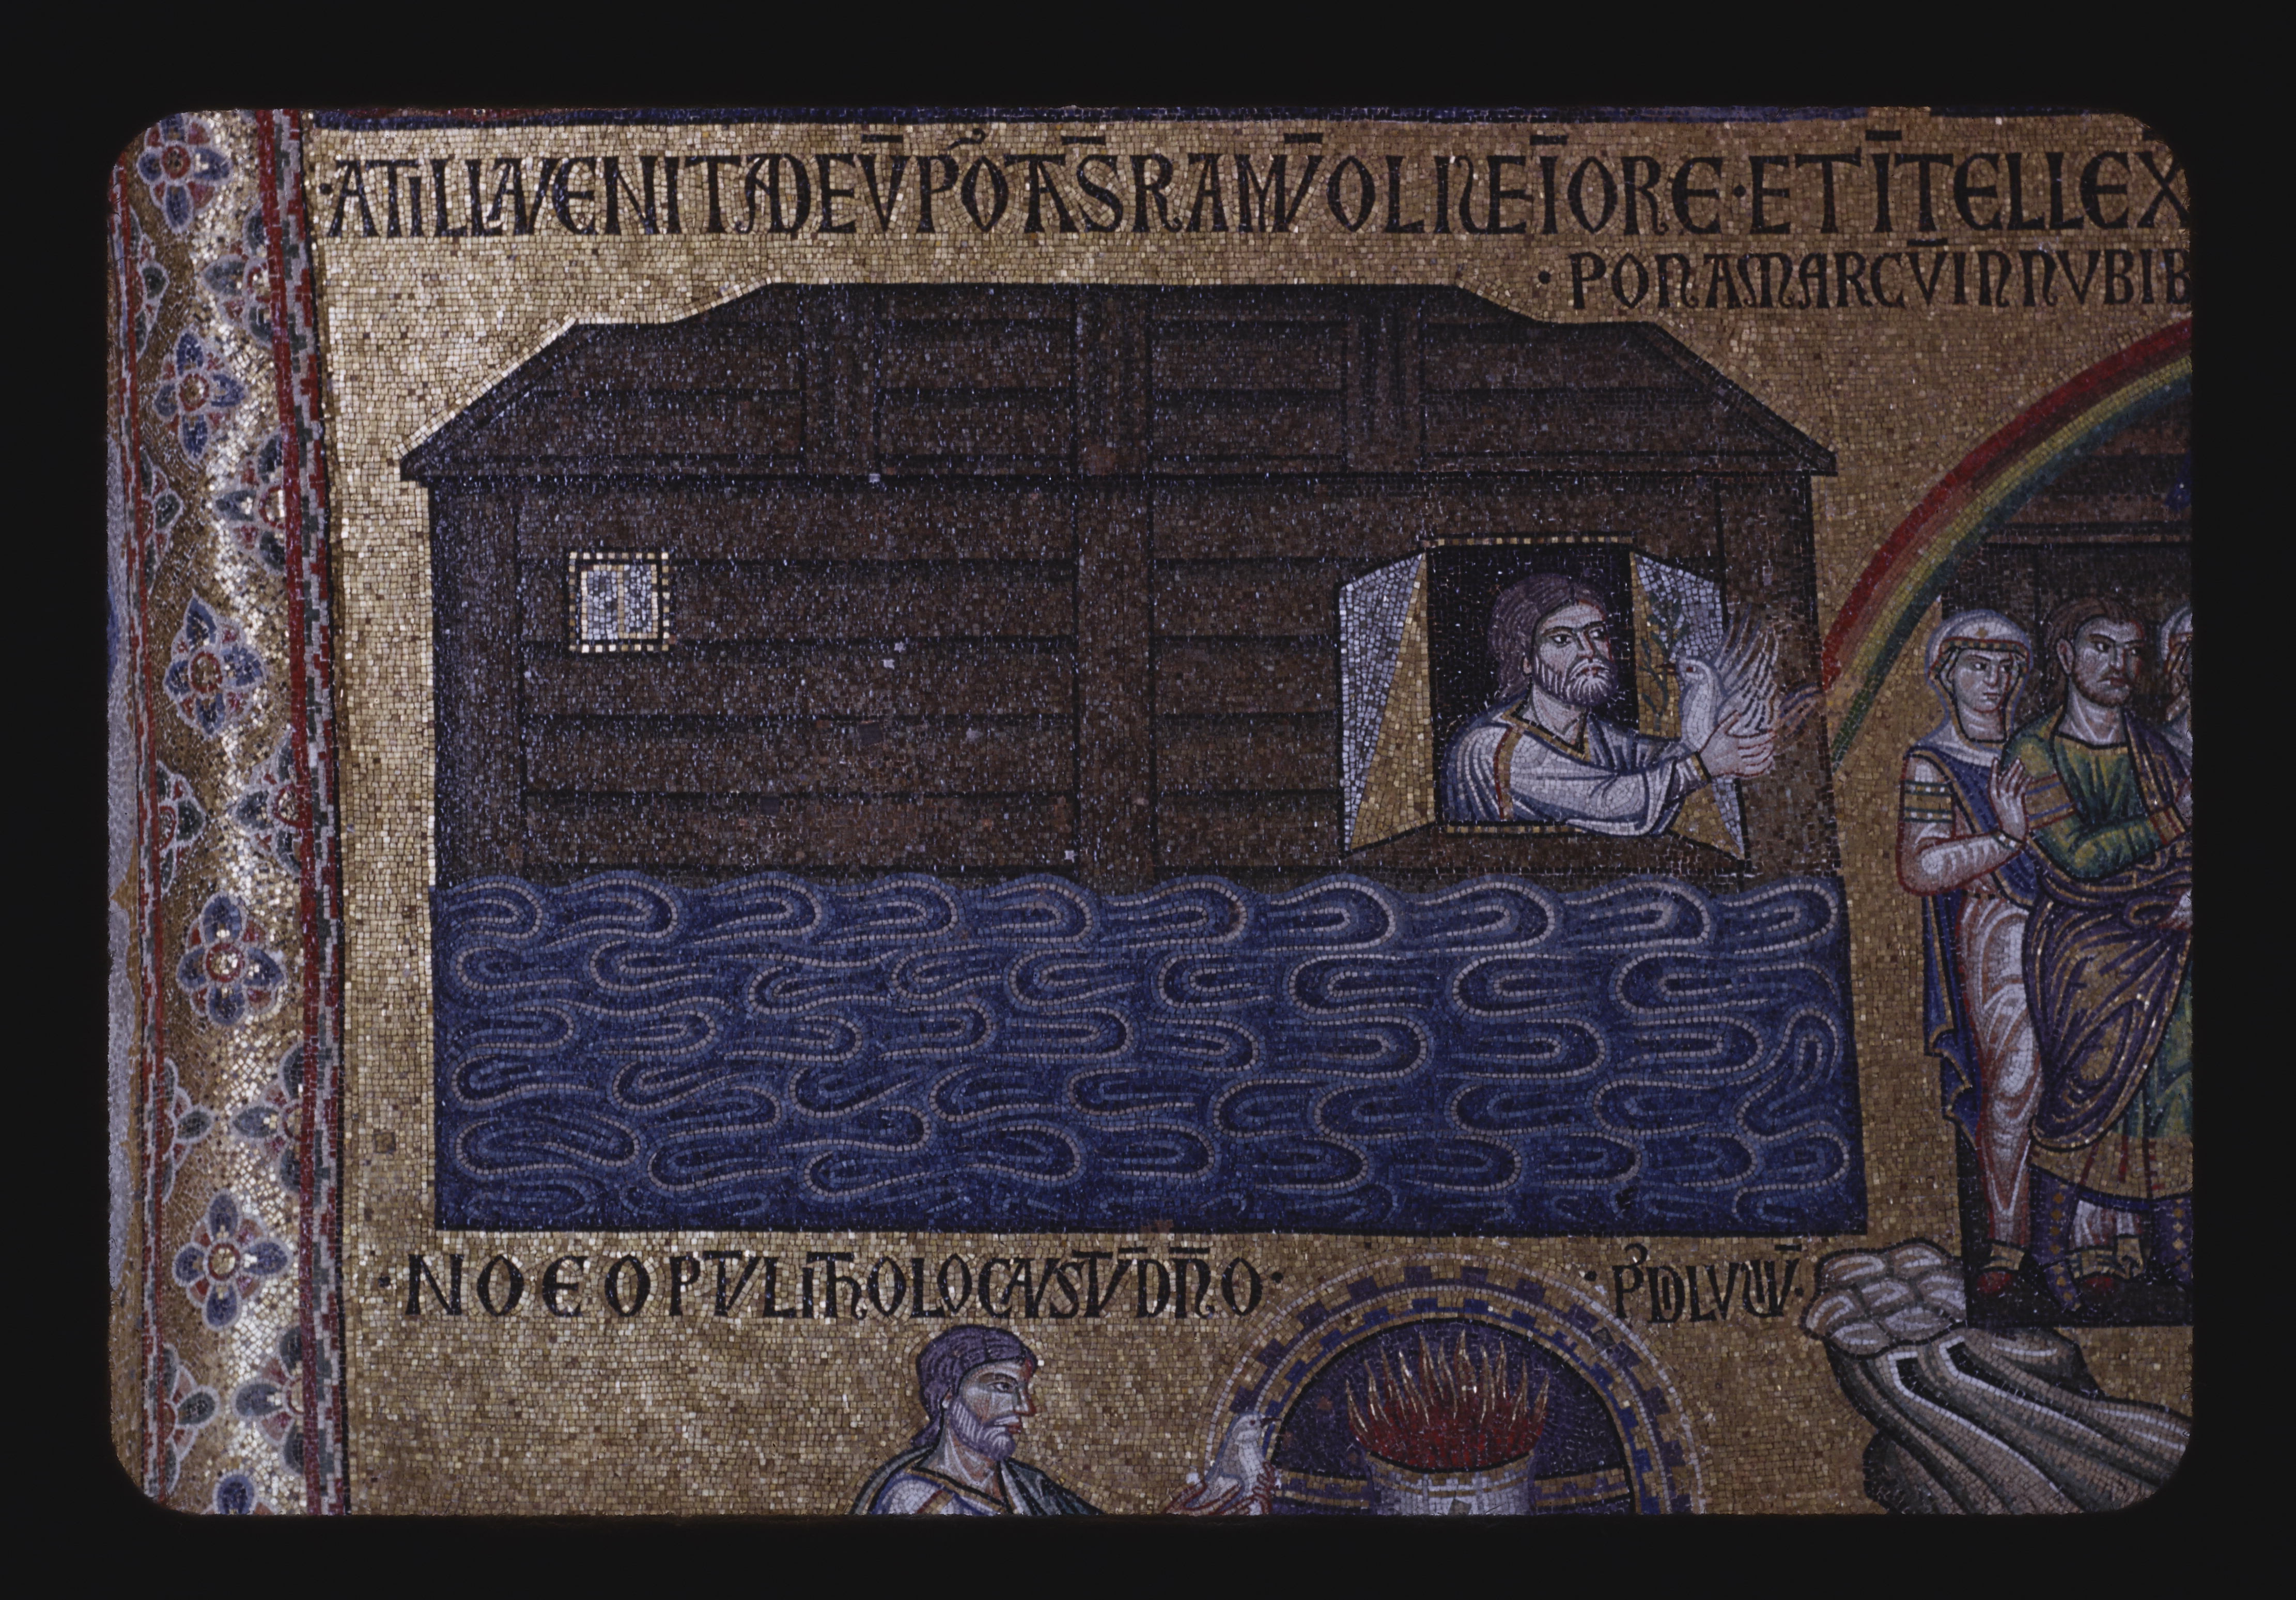 ·ATILLAVENITADEV̄PO͂TAS̄RAMV̄OLIVEĪORE·ETĪTELLEX
·PONAMARCV̄INNVBIB
·NOEOPTVLIT HOLOCAVSTV̄DN̄O·
·P᾽DILVVIV̄·